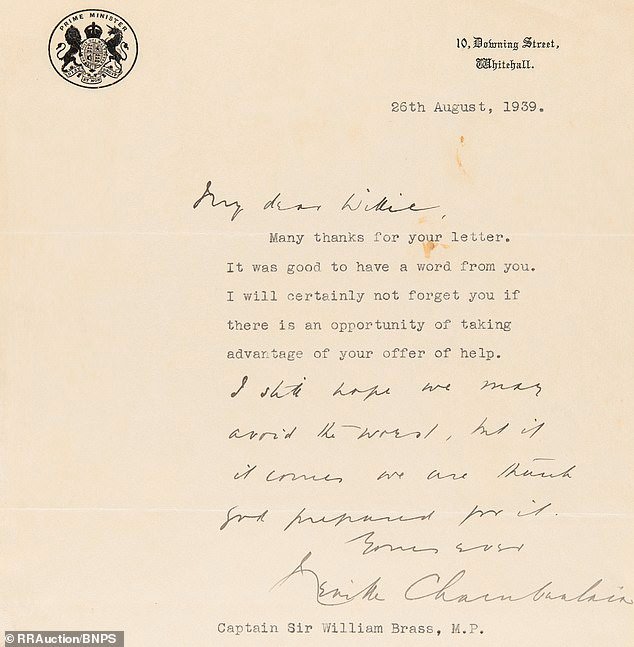 PRIME MINISTER
10, Downing Street,
Whitehall.
26th August, 1939.
My dear Willie,
Many thanks for your letter.
It was good to have a word from you.
I will certainly not forget you if
there is an opportunity of taking
advantage of your offer of help.
I still hope we may
avoid the worst, but if
it comes we are thank
God prepared for it.
Yours ever
Neville Chamberlain
Captain Sir William Brass, M.P.
© RRAuction/BNPS